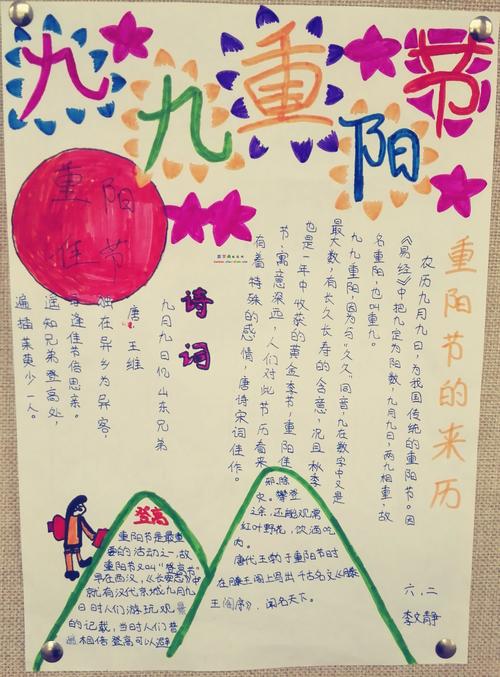 九九重阳节
重阳
佳节
重阳节的来历
农历九月九日，为我国传统的重阳节。因
《易经》中把九定为阳数，九月九日，两九相重，故
名重阳，也叫重九。
九九重阳，因为与"久久"同音，九在数字中又是
最大数，有长久长寿的含意，况且秋季
也是一年中收获的黄金季节，重阳佳
节，寓意深远，人们对此节历看来
有着特殊的感情，唐诗宋词佳作。
诗词
九月九日忆山东兄弟
唐 王维
独在异乡为异客，
每逢佳节倍思亲。
遥知兄弟登高处，
遍插茱萸少一人。
登高
重阳节是最重
要的活动之一，故
重阳节又叫"登高节"
早在西汉，《长安志》中
就有汉代京城九月九
日时人们游玩观景
的记载，当时人们昔
相信登高可以避
邪，除
灾，攀登
之余，还能观赏
红叶野花，饮酒吃
肉。
唐代王勃于重阳节时
在滕王阁上写出千古名文《滕
王阁序》，闻名天下。
六、二
李文静